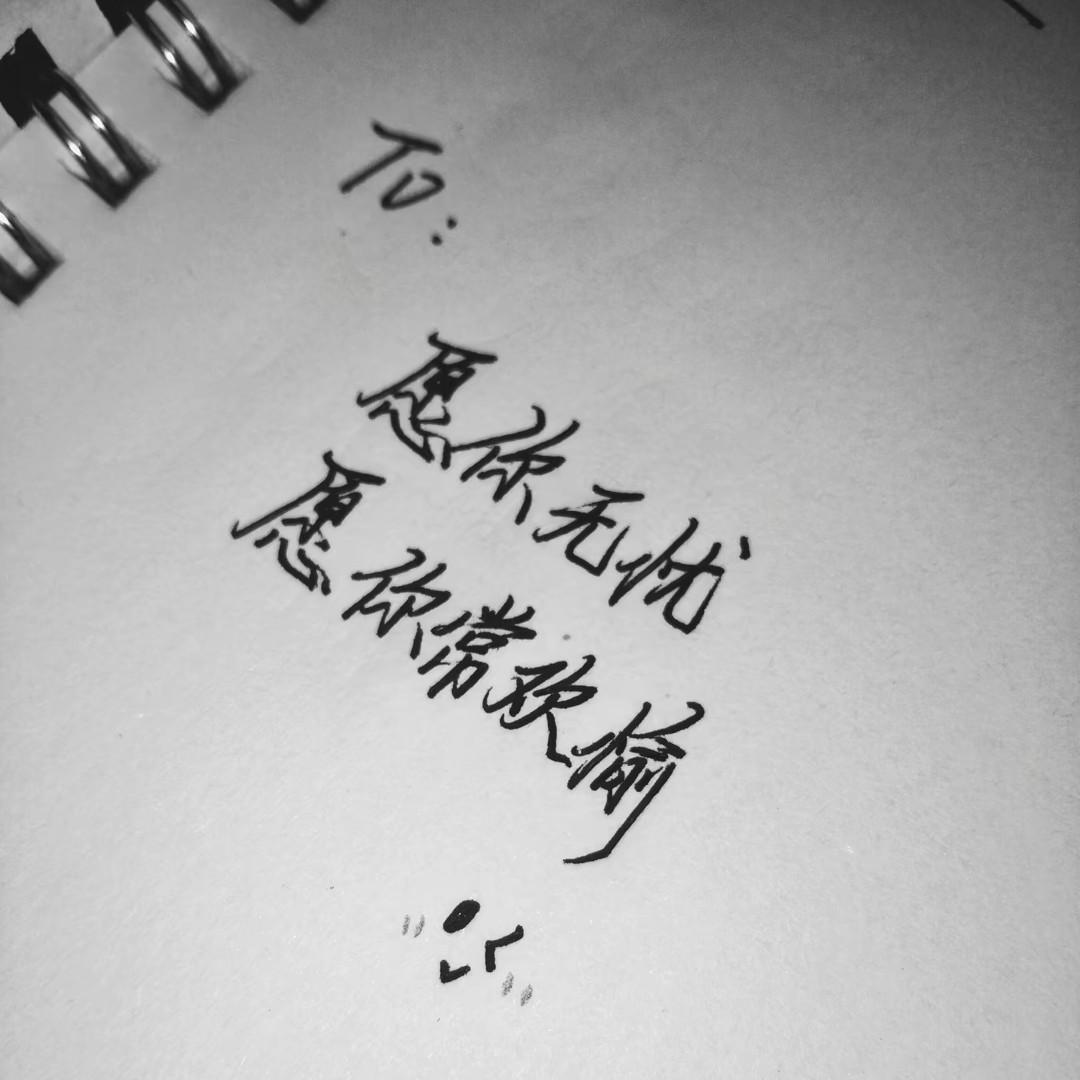 To:
愿你无忧
愿你常欢愉